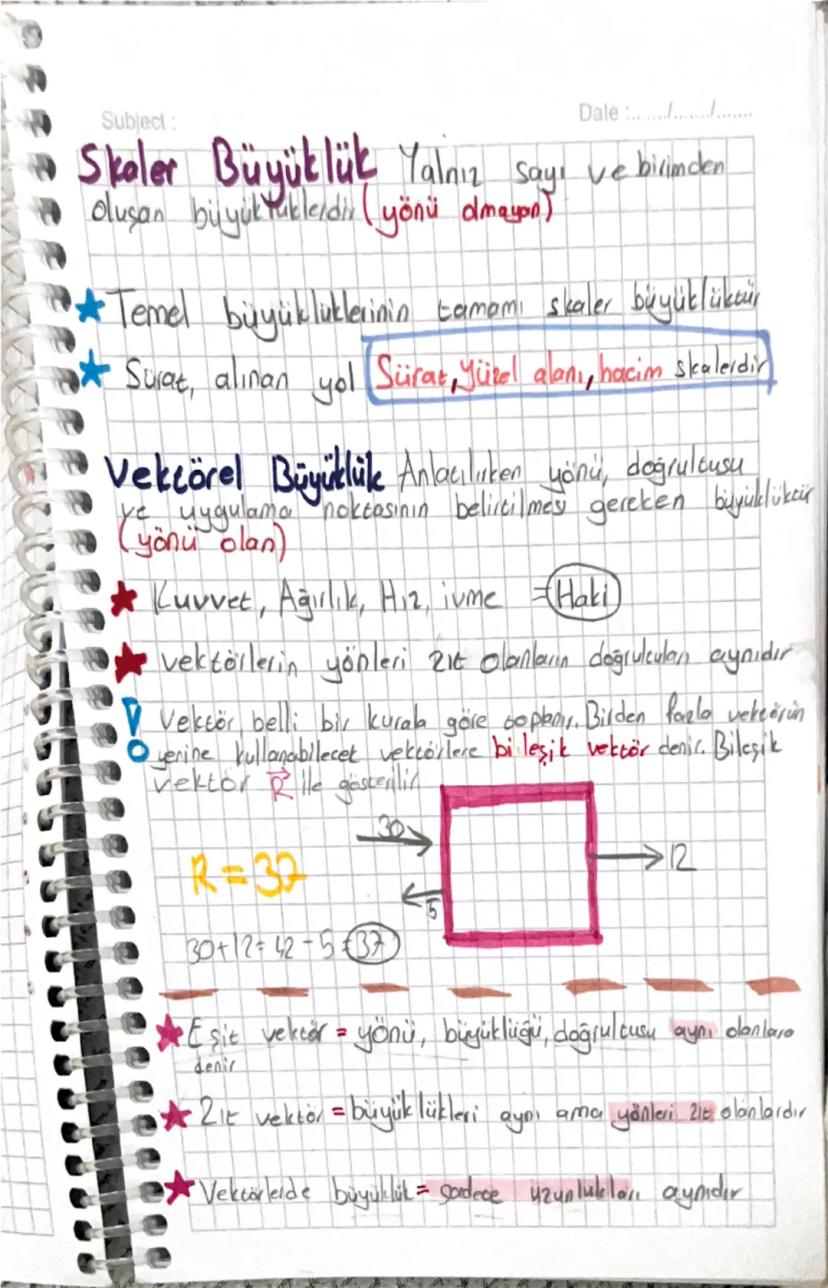 Subject :
Date :....../....../......
Skaler Büyüklük Yalnız sayı ve birimden
oluşan büyüklüklerdir (yönü olmayan)
Temel büyüklüklerinin tamamı skaler büyüklüktür
Sürat, alınan yol Sürat, Yüzel alanı, hacim skalerdir
Vektörel Büyüklük Anlatılırken yönü, doğrultusu
ve uygulama noktasının belirtilmesi gereken büyüklüktür
(yönü olan)
Kuvvet, Ağırlık, Hız, ivme = Haki
vektörlerin yönleri zıt olanların doğrultuları aynıdır
Vektör belli bir kurala göre toplanır. Birden fazla vektörün
yerine kullanabilecet vektörlere bileşik vektör denir. Bileşik
vektör R ile gösterilir
30
12
R = 37
5
30+12=42-5=37
Eşit vektör = yönü, büyüklüğü, doğrultusu aynı olanlara
denir
Zıt vektör = büyüklükleri aynı ama yönleri zıt olanlardır
Vektörlerde büyüklük = sadece uzunlukları aynıdır